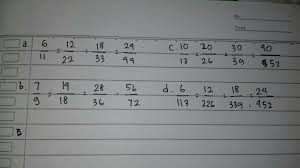 a. 6/11 = 12/22 = 18/33 = 24/44
c. 10/13 = 20/26 = 30/39 = 40/52
b. 7/9 = 14/18 = 28/36 = 56/72
d. 6/113 = 12/226 = 18/339 = 24/452